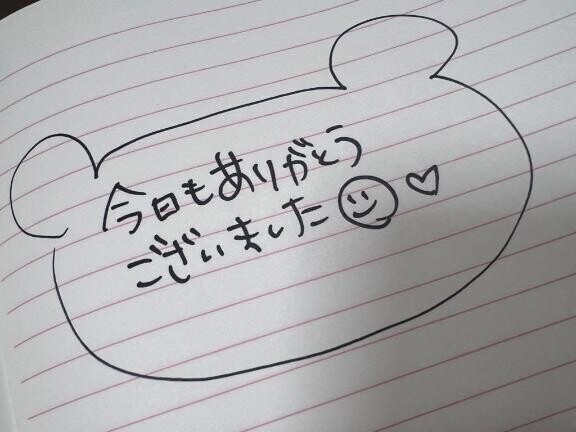 今日もありがとう
ございました☺♡